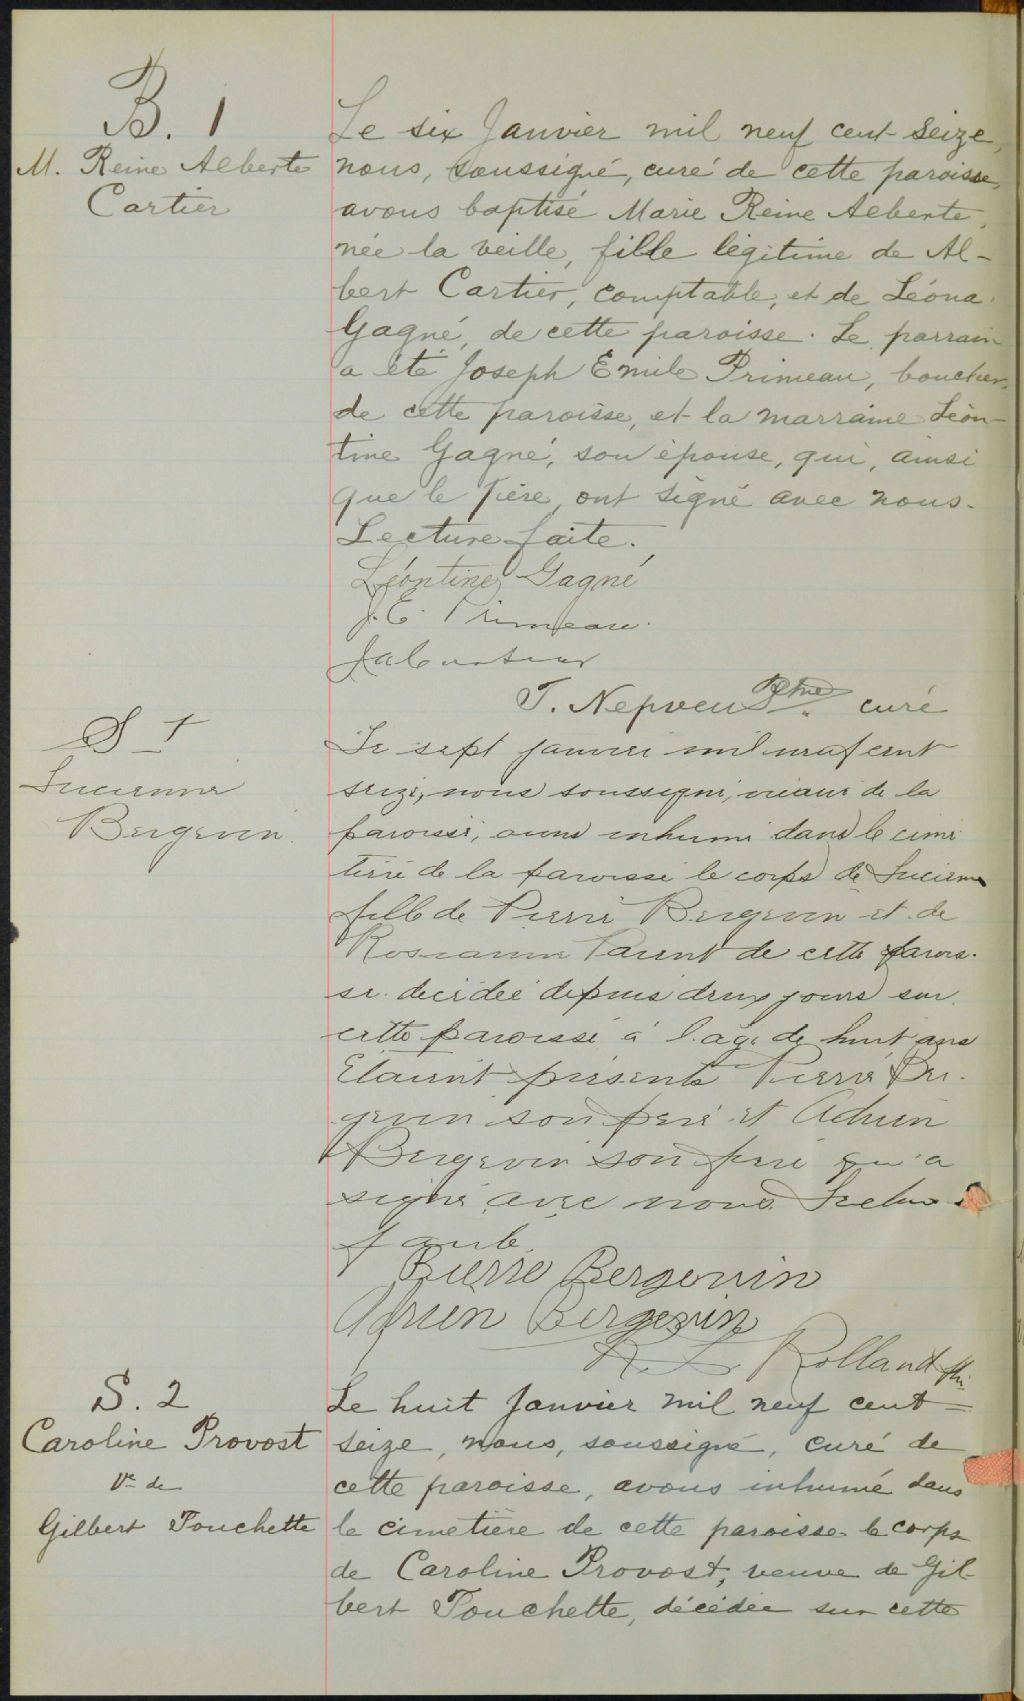 B. 1
M. Reine Alberte
Cartier
Le six Janvier mil neuf cent seize,
nous, soussigné, curé de cette paroisse,
avons baptisé Marie Reine Alberte,
née la veille, fille légitime de Al-
bert Cartier, comptable, et de Léona
Gagné, de cette paroisse. Le parrain
a été Joseph Emile Primeau, boucher,
de cette paroisse, et la marraine Léon-
tine Gagné, son épouse, qui, ainsi
que le père, ont signé avec nous.
Lecture faite.
Léontine Gagné
J. E. Primeau.
T. Nepveu Ptre curé
S 1
Lucienne
Bergevin.
Le sept janvier mil neuf cent
seize, nous soussigné, vicaire de la
paroisse, avons inhumé dans le cime
tière de la paroisse le corps de Lucienne
fille de Pierre Bergevin et de
Roseanna Parent de cette parois-
se décédée depuis deux jours sur
cette paroisse à l'age de huit ans
Etaient présents Pierre Ber-
gevin son père et Adrien
Bergevin son frère qui a
signé avec nous. Lecture
faite.
Pierre Bergevin
Adrien Bergevin
Rolland ptre
S. 2
Caroline Provost
Ve de
Gilbert Touchette
Le huit Janvier mil neuf cent-
seize, nous, soussigné, curé de
cette paroisse, avons inhumé dans
le cimetière de cette paroisse le corps
de Caroline Provost, veuve de Gil-
bert Touchette, décédée sur cette